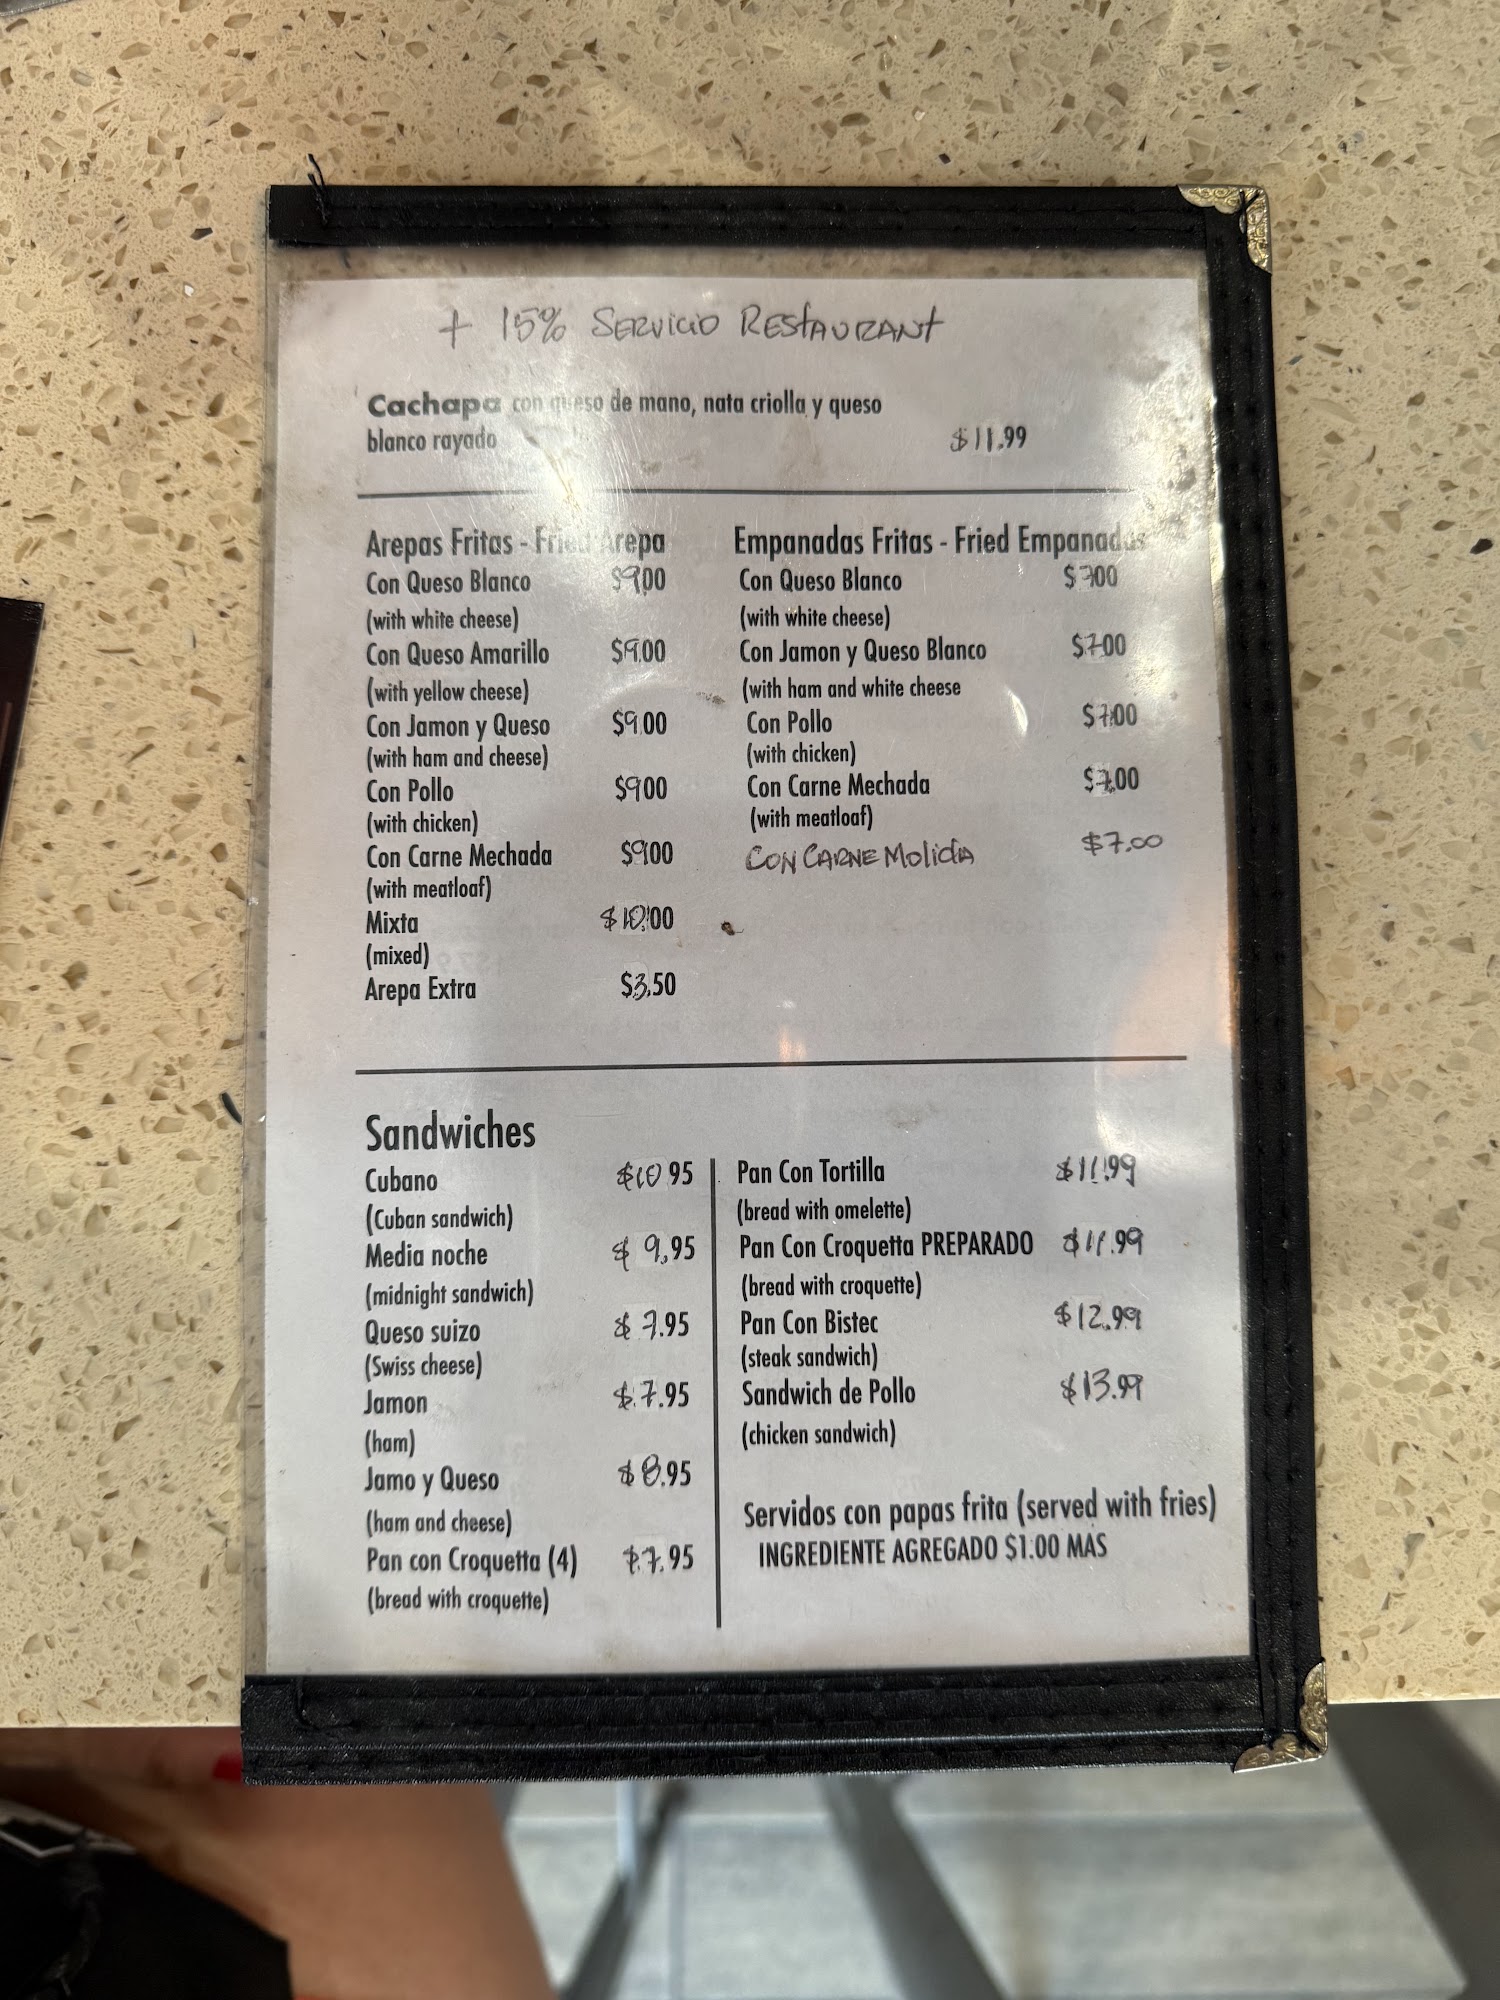 + 15% SERVICIO RESTAURANT
Cachapa con queso de mano, nata criolla y queso
blanco rayado $11.99
Arepas Fritas - Fried Arepa
Con Queso Blanco $9.00
(with white cheese)
Con Queso Amarillo $9.00
(with yellow cheese)
Con Jamon y Queso $9.00
(with ham and cheese)
Con Pollo $9.00
(with chicken)
Con Carne Mechada $9.00
(with meatloaf)
Mixta $10.00
(mixed)
Arepa Extra $3.50
Empanadas Fritas - Fried Empanadas
Con Queso Blanco $7.00
(with white cheese)
Con Jamon y Queso Blanco $7.00
(with ham and white cheese
Con Pollo $7.00
(with chicken)
Con Carne Mechada $7.00
(with meatloaf)
CON CARNE MOLIDA $7.00
Sandwiches
Cubano $10.95
(Cuban sandwich)
Media noche $9.95
(midnight sandwich)
Queso suizo $7.95
(Swiss cheese)
Jamon $7.95
(ham)
Jamo y Queso $8.95
(ham and cheese)
Pan con Croquetta (4) $7.95
(bread with croquette)
Pan Con Tortilla $11.99
(bread with omelette)
Pan Con Croquetta PREPARADO $11.99
(bread with croquette)
Pan Con Bistec $12.99
(steak sandwich)
Sandwich de Pollo $13.99
(chicken sandwich)
Servidos con papas frita (served with fries)
INGREDIENTE AGREGADO $1.00 MAS